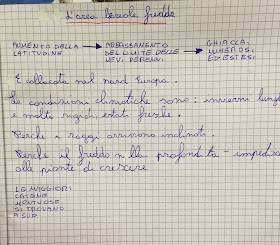 L'area boreale fredda
AUMENTO DELLA LATITUDINE → ABBASSAMENTO DEL LIMITE DELLE NEVI PERENNI → GHIACCAI NUMEROSI ED ESTESI
È collocata nel nord Europa.
Le condizioni climatiche sono: inverni lunghi
e molto rigidi, estati fresche.
Perché i raggi arrivano inclinati.
Perché il freddo nella profondità impedisce
alle piante di crescere
LE MAGGIORI
CATENE
MONTUOSE
SI TROVANO
A SUD